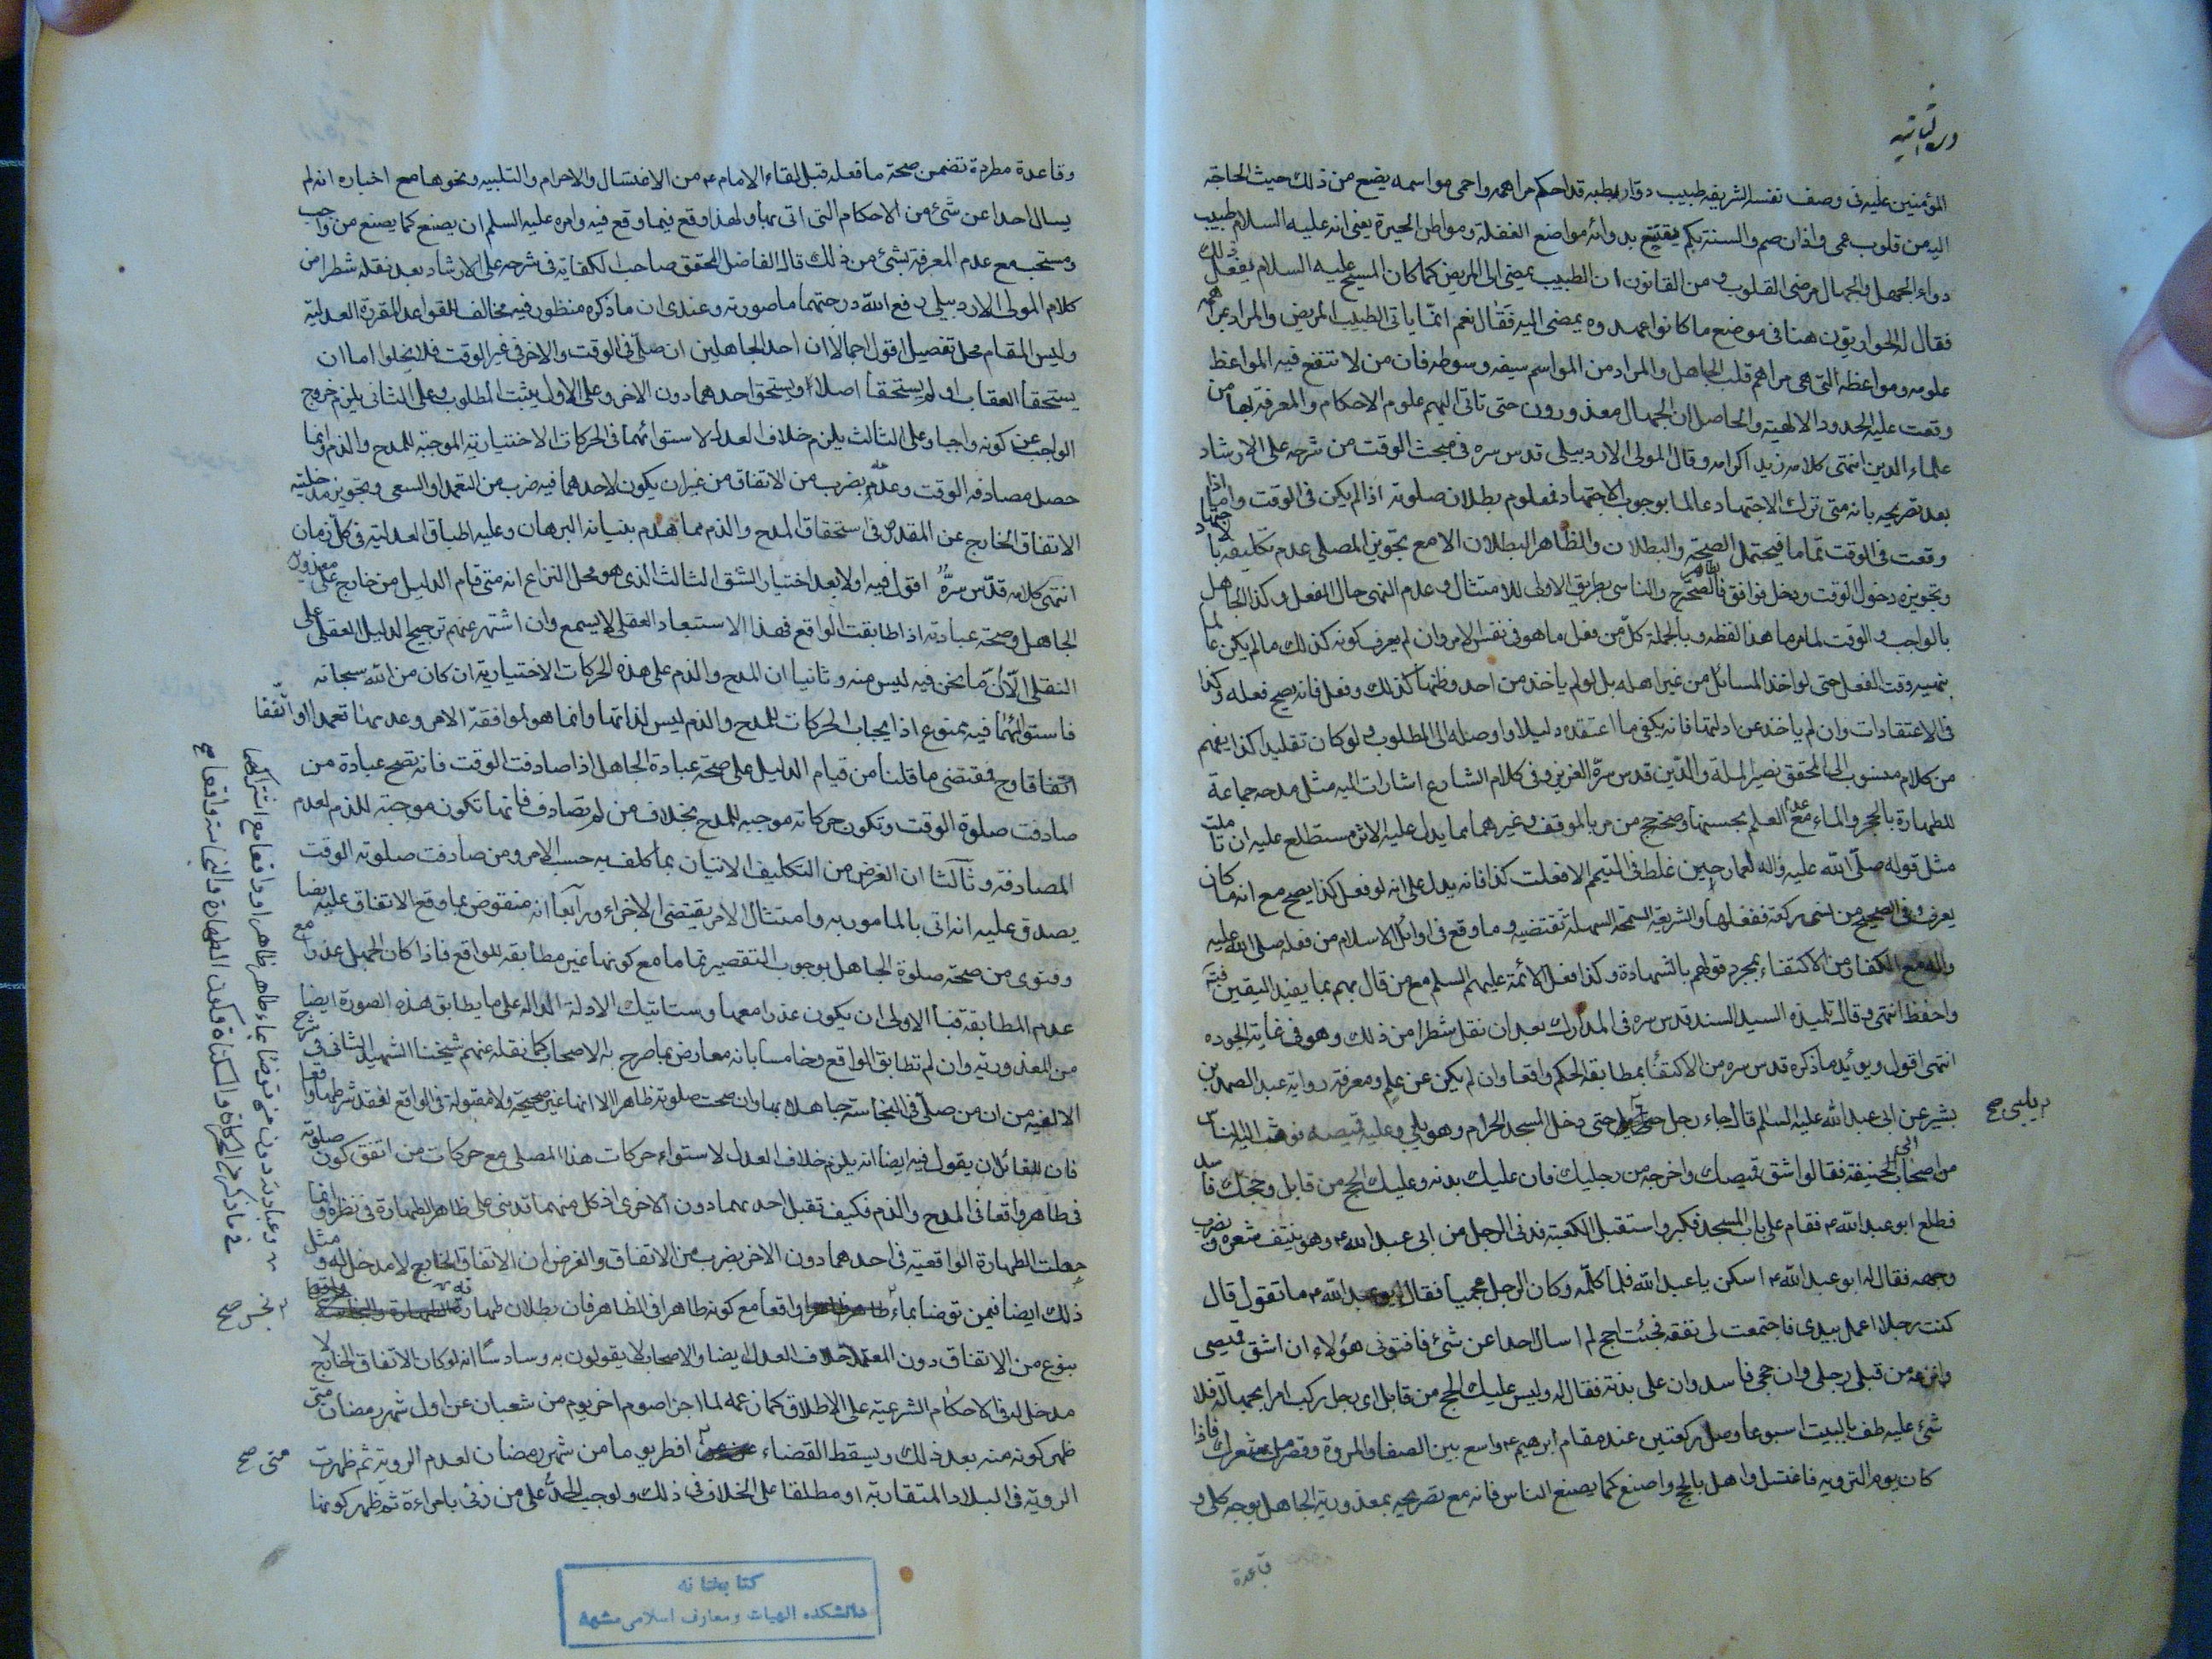 المؤمنين عليه في وصف نفسه الشريفه طبيب دوار بطبه قد احكم مراهمه واحمى مواسمه يضع من ذلك حيث الحاجة
اليه من قلوب عمى واذان صم والسنة بكم يتبع بدوائه مواضع الغفلة ومواطن الحيرة يعني انه عليه السلام طبيب
دواء الجهل والجهال مرضى القلوب ومن القانون ان الطبيب يمضى الى المريض كما كان المسيح عليه السلام يفعل ذلك
فقال له الحواريون هنا في موضع ما كانوا عهدوه يمضى اليه فقال نعم انما ياتى الطبيب المريض والمراد بمراهمه
علومه ومواعظه التى هى مراهم قلب الجاهل والمراد من المواسم سيفه وسوطه فان من لا تنفع فيه المواعظ
وقعت عليه الحدود الالهية والحاصل ان الجهال معذورون حتى تاتى اليهم علوم الاحكام والمعرفة بها من
علماء الدين انتهى كلامه زيد اكرامه وقال المولى الاردبيلى قدس سره في مبحث الوقت من شرحه على الارشاد
بعد تصريحه بانه متى ترك الاجتهاد عالما بوجوب الاجتهاد فمعلوم بطلان صلوته اذا لم يكن في الوقت واما اذا
وقعت في الوقت تماما فيحتمل الصحة والبطلان والظاهر البطلان الا مع تجويز المصلى عدم تكليفه بالاجتهاد
وتجويزه دخول الوقت ودخل فوافق فالظاهر الصحة والناسى بطريق الاولى للامتثال وعدم النهى حال الفعل وكذا الجاهل
بالواجب والوقت لما مر هذا لفظه وبالجملة كل من فعل ما هو في نفس الامر وان لم يعرف كونه كذلك ما لم يكن عالما
بنهيه وقت الفعل حتى لو اخذ المسائل من غير اهله بل لو لم ياخذ من احد وظنها كذلك وفعل فانه يصح فعله وكذا
في الاعتقادات وان لم ياخذ عن ادلتها فانه يكفى ما اعتقده دليلا واوصله الى المطلوب ولو كان تقليدا كذا يفهم
من كلام منسوب الى المحقق نصير الملة والدين قدس سره العزيز وفي كلام الشارع اشارات اليه مثل مدحه جماعة
للطهارة بالحجر والماء مع عدم العلم بحسنها وصحة حج من مر بالموقف وغيرهما مما يدل عليه الاثر مستطلع عليه ان تاملت
مثل قوله صلى الله عليه واله لعمار حين غلط في التيمم الا فعلت كذا فانه يدل على انه لو فعل كذا يصح مع انه ما كان
يعرف وفى الصحيح من نسى ركعة ففعلها والشريعة السمحة السهلة تقتضيه وما وقع في اوائل الاسلام من فعله صلى الله عليه
واله مع الكفار من الاكتفاء بمجرد قولهم بالشهادة وكذا فعل الائمة عليهم السلم مع من قال بهم بما يفيد اليقين فتامل
واحفظ انتهى وقال تلميذه السيد السند قدس سره في المدارك بعد ان نقل شطرا من ذلك وهو في غاية الجوده
انتهى اقول ويؤيد ما ذكره قدس سره من الاكتفاء بمطابقة الحكم واقعا وان لم يكن عن علم ومعرفة رواية عبد الصمد بن
بشير عن ابى عبد الله عليه السلم قال جاء رجل حتى دخل المسجد الحرام وهو يلبى وعليه قميصه فوثب اليه الناس
يلبى صح
من اصحاب ابى حنيفة فقالوا شق قميصك واخرجه من رجليك فان عليك بدنه وعليك الحج من قابل وحجك فاسد
فطلع ابو عبد الله ع فقام على باب المسجد فكبر واستقبل الكعبة فدنى الرجل من ابى عبد الله ع وهو ينتف شعره ويضرب
وجهه فقال له ابو عبد الله ع اسكن يا عبد الله فلما كلمه وكان الرجل عجميا فقال ابو عبد الله ع ما تقول قال
كنت رجلا اعمل بيدى فاجتمعت لى نفقه فجئت احج لم اسال احدا عن شئ فافتونى هؤلاء ان اشق قميصى
وانزعه من قبل رجلى وان حجى فاسد وان على بدنة فقال له وليس عليك الحج من قابل اى رجل ركب امرا بجهالة فلا
شئ عليه طف بالبيت اسبوعا وصل ركعتين عند مقام ابرهيم ع واسع بين الصفا والمروة وقصر من شعرك فاذا
كان يوم التروية فاغتسل واهل بالحج واصنع كما يصنع الناس فانه مع تصريحه بمعذورية الجاهل بوجه كلى و
قاعدة
وقاعدة مطردة تضمن صحة ما فعله قبل لقاء الامام ع من الاغتسال والاحرام والتلبيه ونحوها مع اخباره انه لم
يسال احدا عن شئ من الاحكام التى اتى بها ولهذا وقع فيما وقع فيه وامره عليه السلم ان يصنع كما يصنع من واجب
ومستحب مع عدم المعرفة بشئ من ذلك قال الفاضل المحقق صاحب الكفاية في شرحه على الارشاد بعد نقله شطرا من
كلام المولى الاردبيلى رفع الله درجتهما ما صورته وعندى ان ما ذكره منظور فيه مخالف للقواعد المقررة العدلية
وليس المقام محل تفصيل اقول اجمالا ان احد الجاهلين ان صلى في الوقت والاخر في غير الوقت فلا يخلوا اما ان
يستحقا العقاب او لم يستحقا اصلا او يستحق احدهما دون الاخر وعلى الاول يثبت المطلوب وعلى الثانى يلزم خروج
الواجب عن كونه واجبا وعلى الثالث يلزم خلاف العدل لاستوائهما في الحركات الاختيارية الموجبه للمدح والذم وانما
حصل مصادفة الوقت وعدمه بضرب من الاتفاق من غير ان يكون لاحدهما فيه ضرب من التعمد او السعى وتجويز مدخلية
الاتفاق الخارج عن المقدور في استحقاق المدح والذم مما هدم بنيانه البرهان وعليه اطباق العدلية في كل زمان
انتهى كلامه قدس سره اقول فيه اولا بعد اختيار الشق الثالث الذى هو محل النزاع انه متى قام الدليل من خارج على معذورية
الجاهل وصحة عبادته اذا طابقت الواقع فهذا الاستبعاد العقلى لا يسمع وان اشتهر عنهم ترجيح الدليل العقلى على
النقلى الا ان ما نحن فيه ليس منه وثانيا ان المدح والذم على هذه الحركات الاختيارية ان كان من الله سبحانه
فاستوائهما فيه ممنوع اذ ايجاب الحركات للمدح والذم ليس لذاتها وانما هو لموافقة الامر وعدمها تعمدا او اتفقا
اتفاقا وح فمقتضى ما قلنا من قيام الدليل على صحة عبادة الجاهل اذا صادفت الوقت فانه تصح عبادة من
صادفت صلوة الوقت وتكون حركاته موجبه للمدح بخلاف من لم تصادف فانها تكون موجبة للذم لعدم
المصادفة وثالثا ان الغرض من التكليف الاتيان بما كلف به حسب الامر ومن صادفت صلوته الوقت
يصدق عليه انه اتى بالمامور به وامتثال الامر يقتضى الاجزاء ورابعا انه منقوض بما وقع الاتفاق عليه نصا
وفتوى من صحة صلوة الجاهل بوجوب التقصير تماما مع كونها غير مطابقه للواقع فاذا كان الجهل عذرا مع
عدم المطابقة فبالاولى ان يكون عذرا معها وستاتيك الادلة الداله على ما يطابق هذه الصورة ايضا
من المعذورية وان لم تطابق الواقع وخامسا بانه معارض بما صرح به الاصحاب كما نقله عنهم شيخنا الشهيد الثانى في شرح
الالفيه من ان من صلى في النجاسة جاهلا بها وان صحت صلوته ظاهرا الا انها غير صحيحة ولا مقبولة في الواقع لفقد شرطها واقعا
فان للقائل ان يقول فيه ايضا انه يلزم خلاف العدل لاستواء حركات هذا المصلى مع حركات من اتفق كون صلوته
في طاهر واقعا في المدح والذم فكيف تقبل احدهما دون الاخرى اذ كل منهما قد بنى على ظاهر الطهارة في نظره وانما
حصلت الطهارة الواقعية في احدهما دون الاخر بضرب من الاتفاق والغرض ان الاتفاق الخارج لا مدخل له ومثل
ذلك ايضا فيمن توضا بماء نجس واقعا مع كونه طاهرا في الظاهر فان بطلان طهارته
نجس صح
بنوع من الاتفاق دون التعمد خلاف العدل ايضا والاصحاب لا يقولون به وسادسا انه لو كان الاتفاق الخارج لا
مدخل له في الاحكام الشرعية على الاطلاق كما زعمه لما اجزا صوم اخر يوم من شعبان عن اول شهر رمضان متى
ظهر كونه منه بعد ذلك ويسقط القضاء افطر يوما من شهر رمضان لعدم الروية ثم ظهرت
متى صح
الروية في البلاد المتقاربة او مطلقا على الخلاف في ذلك ولوجب الحد على من زنى بامراة ثم ظهر كونها
وعبادته دون من توضا بماء طاهر ظاهرا وواقعا مع اشتراكهما
فيما ذكر من الحركات والسكنات وكون الطهارة والنجاسة واقعا صح
كتابخانه
دانشكده الهيات ومعارف اسلامى مشهد